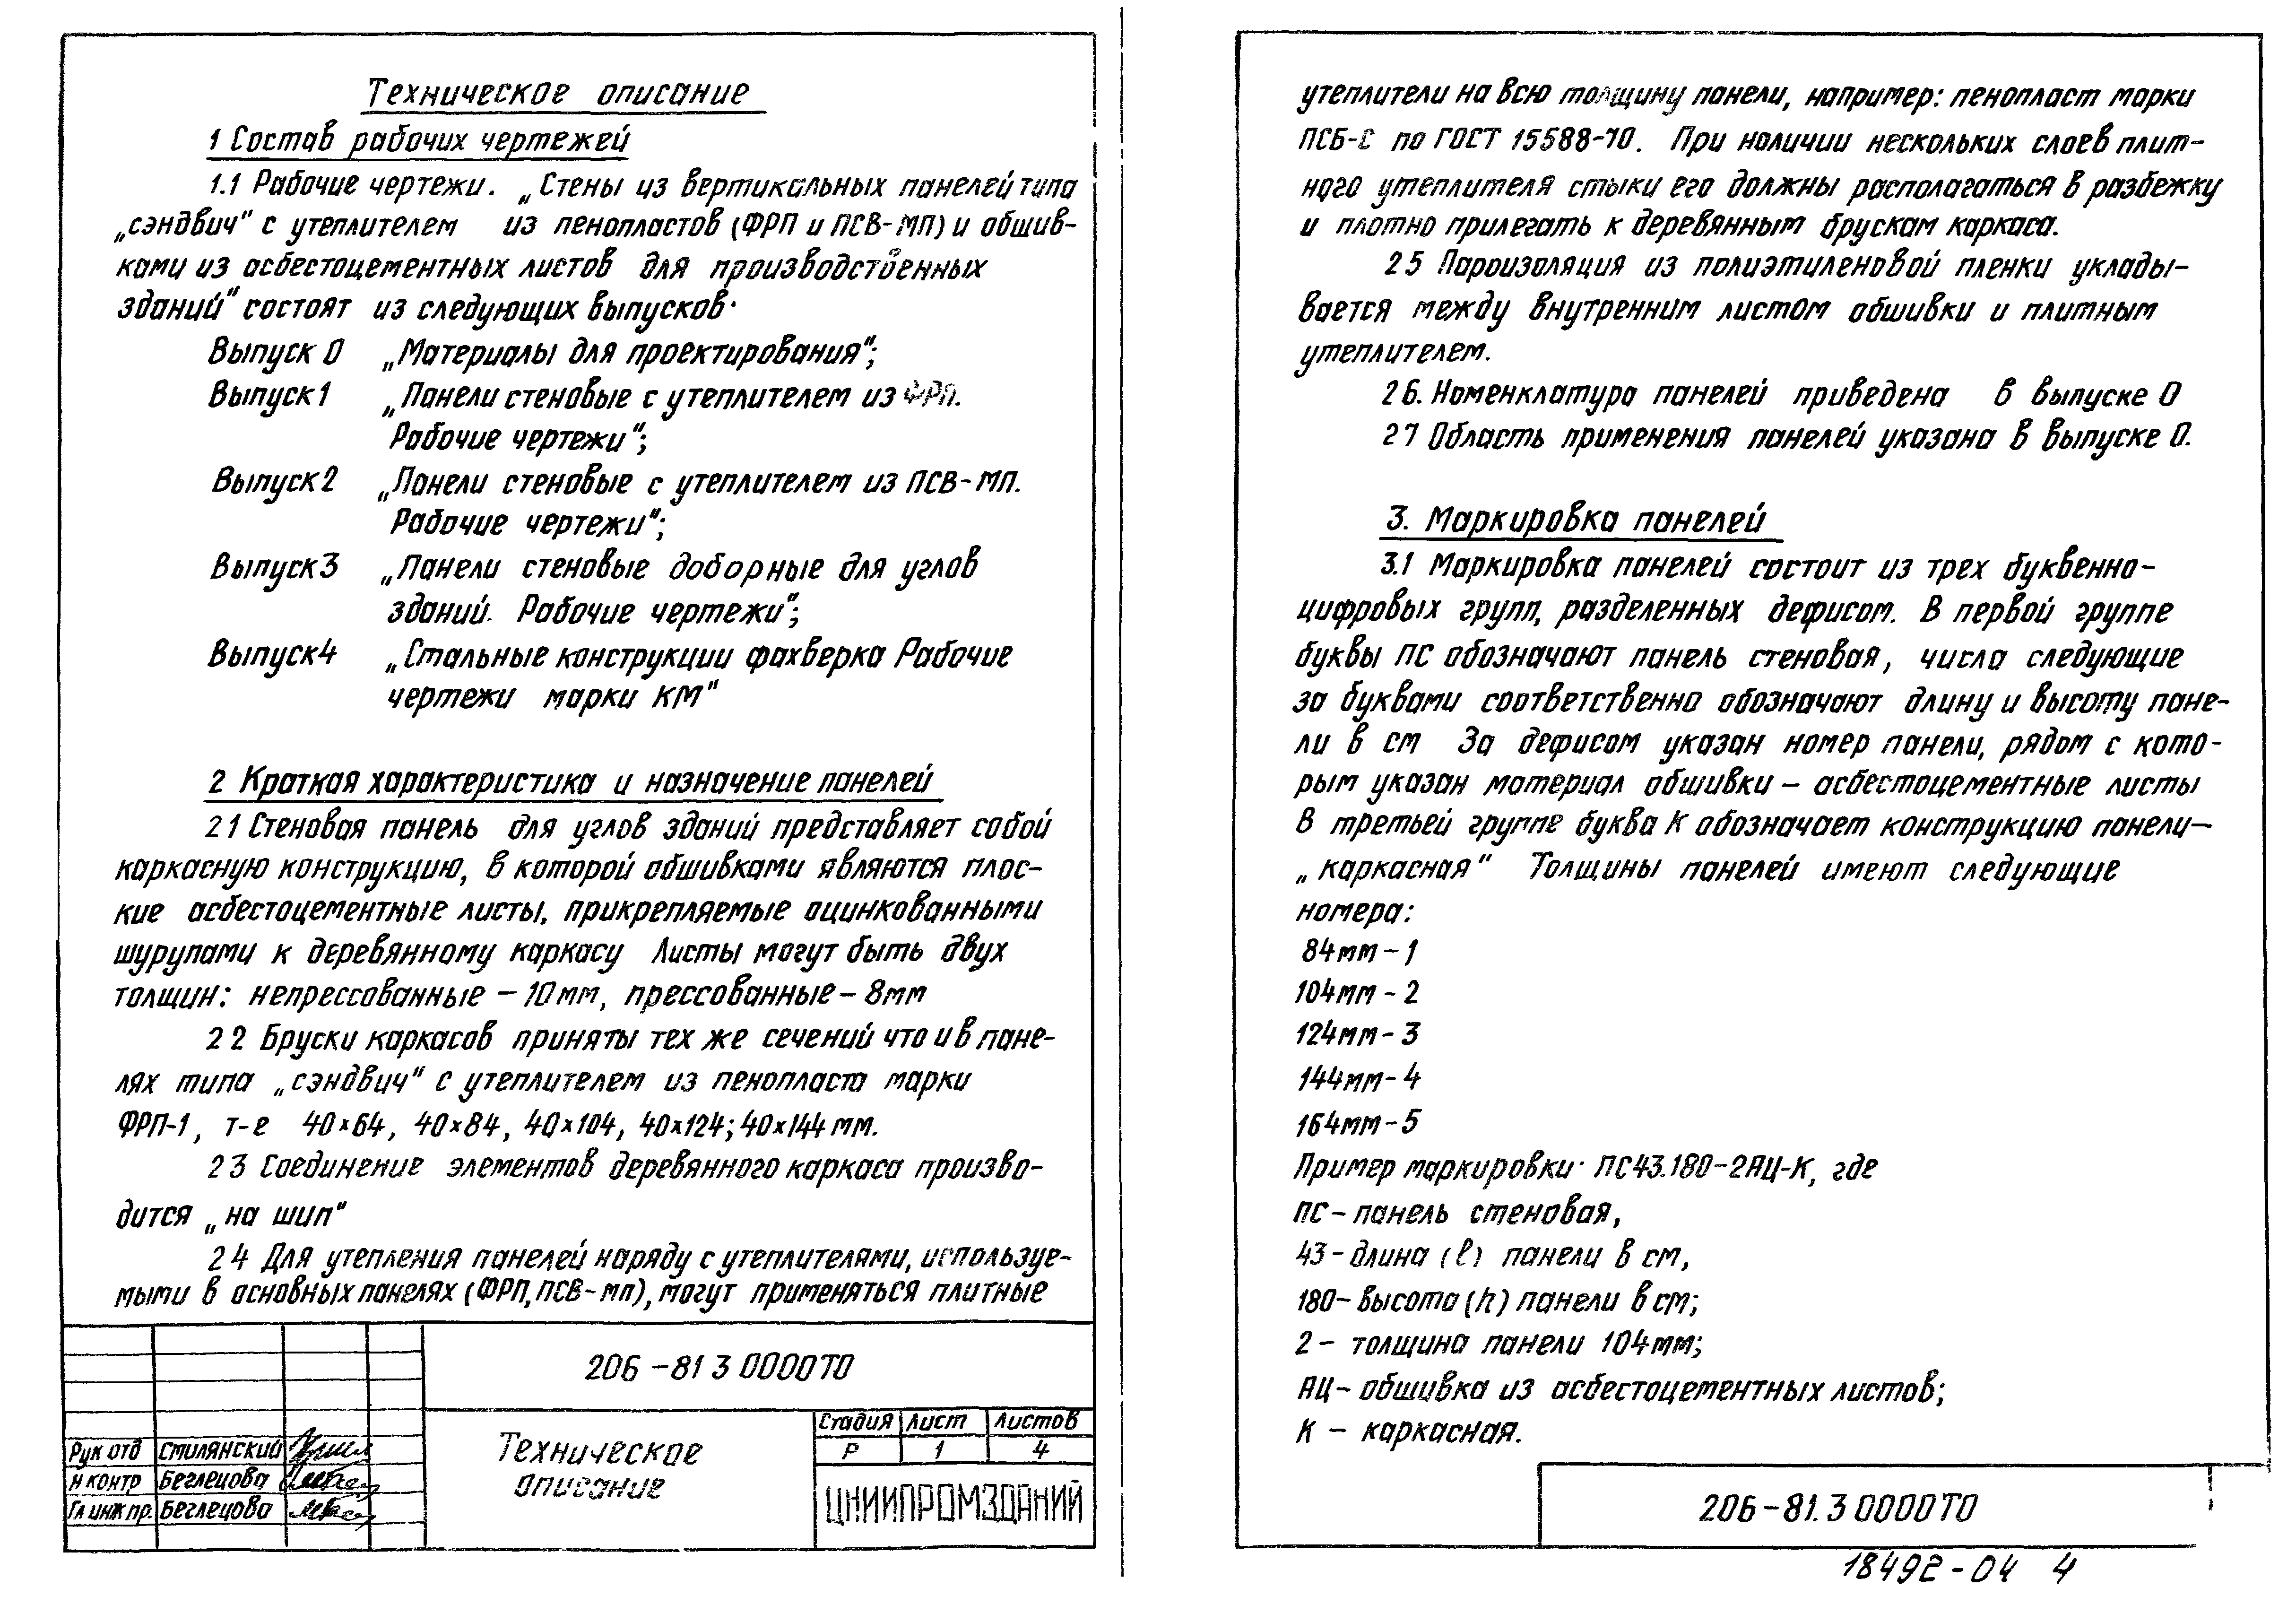 Техническое описание
1 Состав рабочих чертежей
1.1 Рабочие чертежи. „Стены из вертикальных панелей типа
„сэндвич" с утеплителем из пенопластов (ФРП и ПСВ-МП) и обшив-
ками из асбестоцементных листов для производственных
зданий" состоят из следующих выпусков·
Выпуск 0 „Материалы для проектирования";
Выпуск 1 „Панели стеновые с утеплителем из ФРП.
Рабочие чертежи";
Выпуск 2 „Панели стеновые с утеплителем из ПСВ-МП.
Рабочие чертежи";
Выпуск 3 „Панели стеновые доборные для углов
зданий. Рабочие чертежи";
Выпуск 4 „Стальные конструкции фахверка Рабочие
чертежи марки КМ"
2 Краткая характеристика и назначение панелей
2 1 Стеновая панель для углов зданий представляет собой
каркасную конструкцию, в которой обшивками являются плос-
кие асбестоцементные листы, прикрепляемые оцинкованными
шурупами к деревянному каркасу Листы могут быть двух
толщин: непрессованные – 10мм, прессованные – 8мм
2 2 Бруски каркасов приняты тех же сечений что и в пане-
лях типа „сэндвич" с утеплителем из пенопласта марки
ФРП-1, т-е 40×64, 40×84, 40×104, 40×124; 40×144 мм.
2 3 Соединение элементов деревянного каркаса произво-
дится „на шип"
2 4 Для утепления панелей наряду с утеплителями, используе-
мыми в основных панелях (ФРП, ПСВ-мп), могут применяться плитные
206-81 3 0000ТО
Стадия Лист Листов
Р 1 4
Техническое
описание
ЦНИИПРОМЗДАНИЙ
Рук отд Смилянский
Н контр Беглецова
Гл инж пр. Беглецова
утеплители на всю толщину панели, например: пенопласт марки
ПСБ-С по ГОСТ 15588-70. При наличии нескольких слоев плит-
ного утеплителя стыки его должны располагаться в разбежку
и плотно прилегать к деревянным брускам каркаса.
2 5 Пароизоляция из полиэтиленовой пленки уклады-
вается между внутренним листом обшивки и плитным
утеплителем.
2 6. Номенклатура панелей приведена в выпуске 0
2 7 Область применения панелей указана в выпуске 0.
3. Маркировка панелей
3.1 Маркировка панелей состоит из трех буквенно-
цифровых групп, разделенных дефисом. В первой группе
буквы ПС обозначают панель стеновая, числа следующие
за буквами соответственно обозначают длину и высоту пане-
ли в см За дефисом указан номер панели, рядом с кото-
рым указан материал обшивки – асбестоцементные листы
В третьей группе буква К обозначает конструкцию панели–
„каркасная" Толщины панелей имеют следующие
номера:
84мм – 1
104мм – 2
124мм – 3
144мм – 4
164мм – 5
Пример маркировки· ПС43.180-2АЦ-К, где
ПС – панель стеновая,
43 – длина (ℓ) панели в см,
180 – высота (h) панели в см;
2 – толщина панели 104мм;
АЦ – обшивка из асбестоцементных листов;
К – каркасная.
206-81.3 0000ТО
18492-04 4